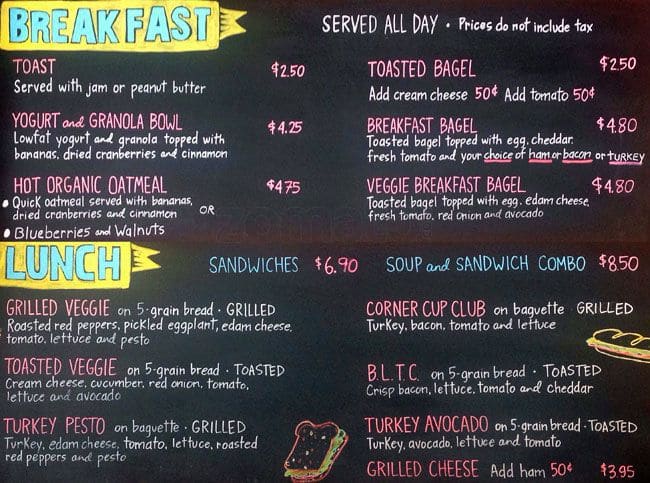 BREAKFAST
SERVED ALL DAY · Prices do not include tax
TOAST $2.50
Served with jam or peanut butter
YOGURT and GRANOLA BOWL $4.25
Lowfat yogurt and granola topped with
bananas, dried cranberries and cinnamon
HOT ORGANIC OATMEAL $4.75
• Quick oatmeal served with bananas,
dried cranberries and cinnamon OR
• Blueberries and Walnuts
TOASTED BAGEL $2.50
Add cream cheese 50¢ Add tomato 50¢
BREAKFAST BAGEL $4.80
Toasted bagel topped with egg, cheddar,
fresh tomato and your choice of ham or bacon or TURKEY
VEGGIE BREAKFAST BAGEL $4.80
Toasted bagel topped with egg, edam cheese,
fresh tomato, red onion and avocado
LUNCH
SANDWICHES $6.90
SOUP and SANDWICH COMBO $8.50
GRILLED VEGGIE on 5-grain bread · GRILLED
Roasted red peppers, pickled eggplant, edam cheese,
tomato, lettuce and pesto
TOASTED VEGGIE on 5-grain bread · TOASTED
Cream cheese, cucumber, red onion, tomato,
lettuce and avocado
TURKEY PESTO on baguette · GRILLED
Turkey, edam cheese, tomato, lettuce, roasted
red peppers and pesto
CORNER CUP CLUB on baguette GRILLED
Turkey, bacon, tomato and lettuce
B.L.T.C. on 5-grain bread · TOASTED
Crisp bacon, lettuce, tomato and cheddar
TURKEY AVOCADO on 5-grain bread · TOASTED
Turkey, avocado, lettuce and tomato
GRILLED CHEESE Add ham 50¢ $3.95